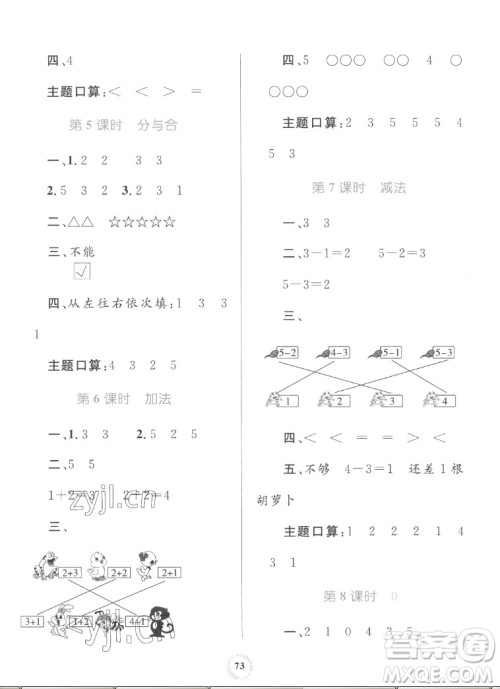 四、4
主题口算：＜ ＜ ＞ ＝
第 5 课时 分与合
一、1. 2 2 3 3
2. 5 3 2 3. 2 3 1
二、△△ ☆☆☆☆☆
三、不能
√
四、从左往右依次填：1 3 3
1
主题口算：4 3 2 5
第 6 课时 加法
一、1. 3 3 2. 5 2 5
二、5 5
1＋2＝3 2＋2＝4
三、
2+3 2+2 2+1
3+1 1+2 4+1
四、5 ○○○ ○○ 4 ○
○○○
主题口算：2 3 5 5 5 4
5 3
第 7 课时 减法
一、3 3
二、3－1＝2 5－2＝3
5－3＝2
三、
5-2 4-3 5-1 5-3
1 2 3 4
四、＜ ＜ ＝ ＝ ＞ ＜
五、不够 4－3＝1 还差 1 根
胡萝卜
主题口算：1 2 2 2 1 4
3 1
第 8 课时 0
一、2 1 0 4 3 5
73
zyjl.cn
zyjl.cn
答案圈